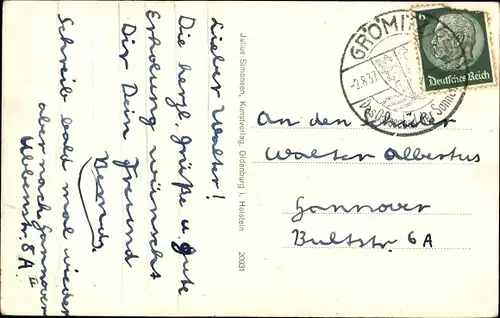 Lieber Walter!
Die herzl. Grüße u. gute
Erholung wünscht
Dir Dein Freund
Schreib bald mal wieder
aber nach Hannover
8A II
Julius Simonsen, Kunstverlag, Oldenburg i. Holstein
20931
GRÖMI
-2.8.37
Das Sonne
6
Deutsches Reich
An den Schüler
Walter Albertus
Hannover
Bultstr. 6A